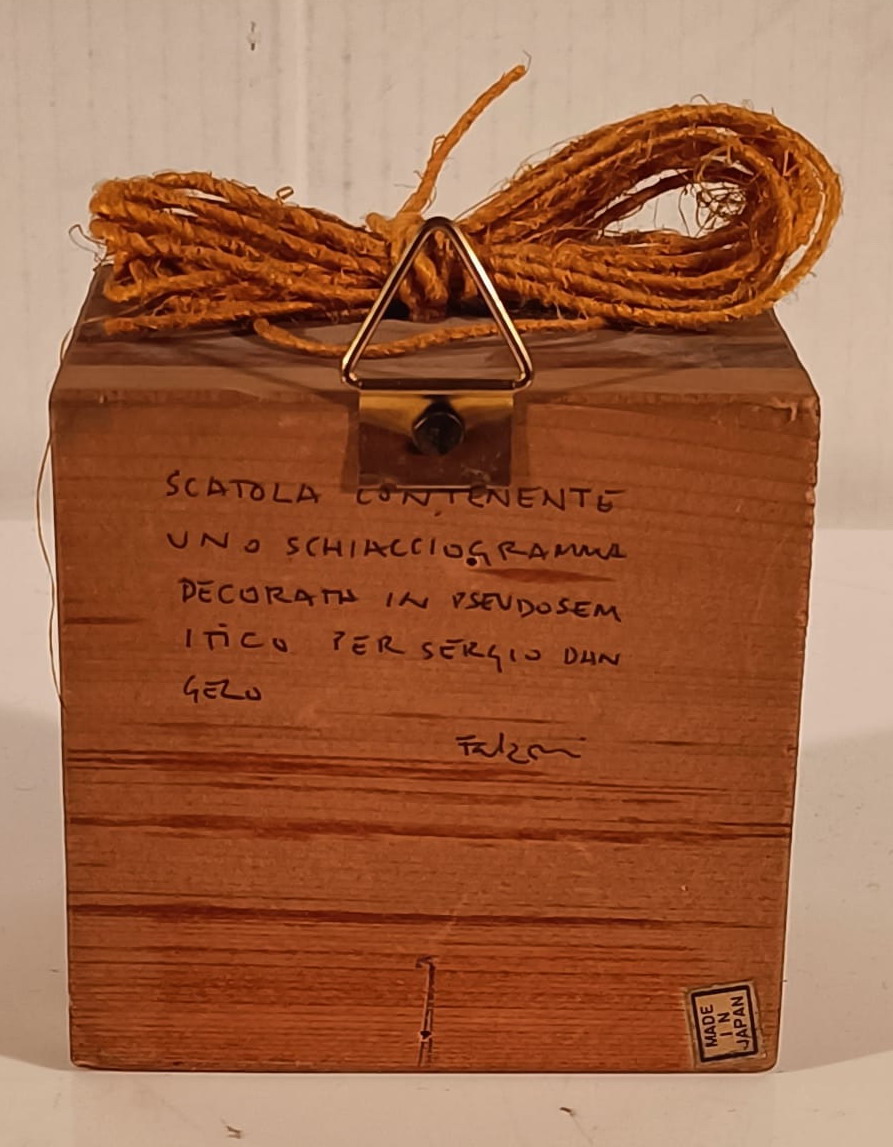 SCATOLA CONTENENTE
UNO SCHIACCIOGRAMMA
DECORATO IN PSEUDOSEM
ITICO PER SERGIO DAN
GELO
Falzoni
MADE
IN
JAPAN